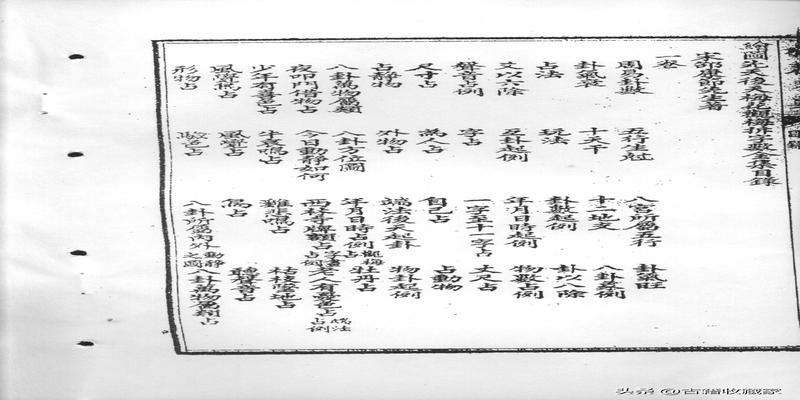 繪圖先天後天梅花觀梅拆字數全集目錄
宋邵康節先生著
一卷
周易卦數 五行生剋 八宮所屬五行 卦氣旺
卦氣衰 十天干 十二地支 八卦象例
占法 玩法 卦數起例 卦以八除
爻以六除 互卦起例 年月日時起例 物數占例
聲音占例 字占 一字至十一字占 丈尺占
尺寸占 為人占 自己占 占動物
占靜物 外物占 端法後天起卦 物卦起例
八卦萬物屬類 八卦方位圖 年月日時占例觀梅占 牡丹占
夜叩門借物占 今日動靜如何 西林寺牌額占字畫占例 老人有憂色占端法占例
少年有喜色占 牛哀鳴占 雞悲鳴占 枯枝墜地占
風覺鳥占 風聲占 鳥占 聽聲音占
形物占 驗色占 八卦所屬內外動靜之圖 八卦萬物屬類占
目錄
头条 @古籍收藏家